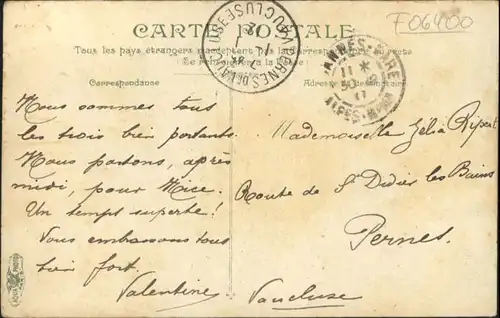 F06400
CARTE POSTALE
Tous les pays étrangers n'acceptent pas la correspondance au recto
Se renseigner à la poste
Correspondance
Nous sommes tous
les trois bien portants.
Nous partons, après
midi, pour Nice.
Un temps superbe!
Vous embrassons tous
bien fort.
Valentine
Mademoiselle Zélia Ripert
Route de St Didier les Bains
Pernes.
Vaucluse